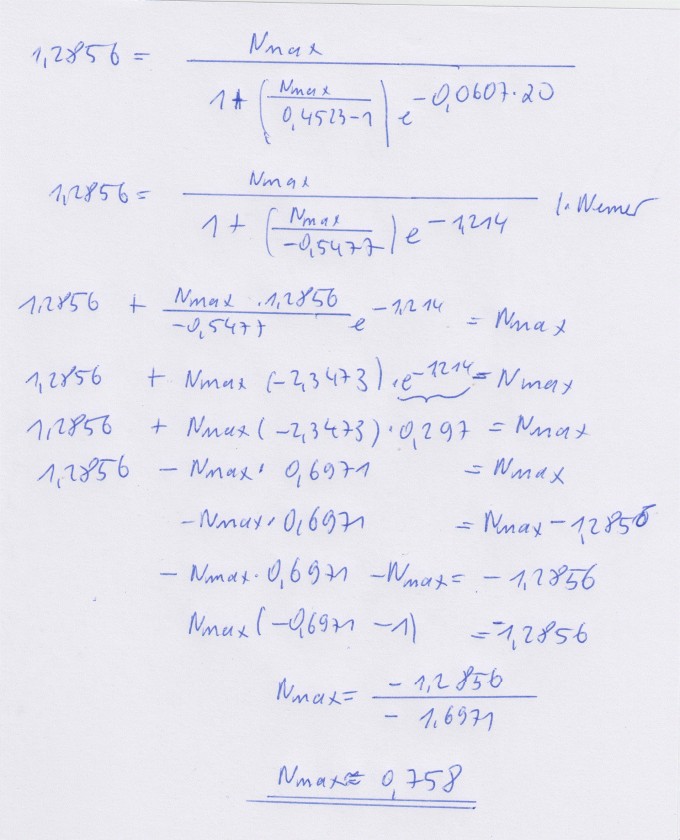 1,2856 = Nmax / (1 + (Nmax / 0,4523-1) e^-0,0607·20)
1,2856 = Nmax / (1 + (Nmax / -0,5477) e^-1,214) |·Nenner
1,2856 + Nmax·1,2856 / -0,5477 e^-1,214 = Nmax
1,2856 + Nmax (-2,3473)·e^-1,214 = Nmax
1,2856 + Nmax (-2,3473)·0,297 = Nmax
1,2856 - Nmax·0,6971 = Nmax
-Nmax·0,6971 = Nmax - 1,2856
- Nmax·0,6971 - Nmax = - 1,2856
Nmax (-0,6971 - 1) = -1,2856
Nmax = - 1,2856 / - 1,6971
Nmax ≈ 0,758